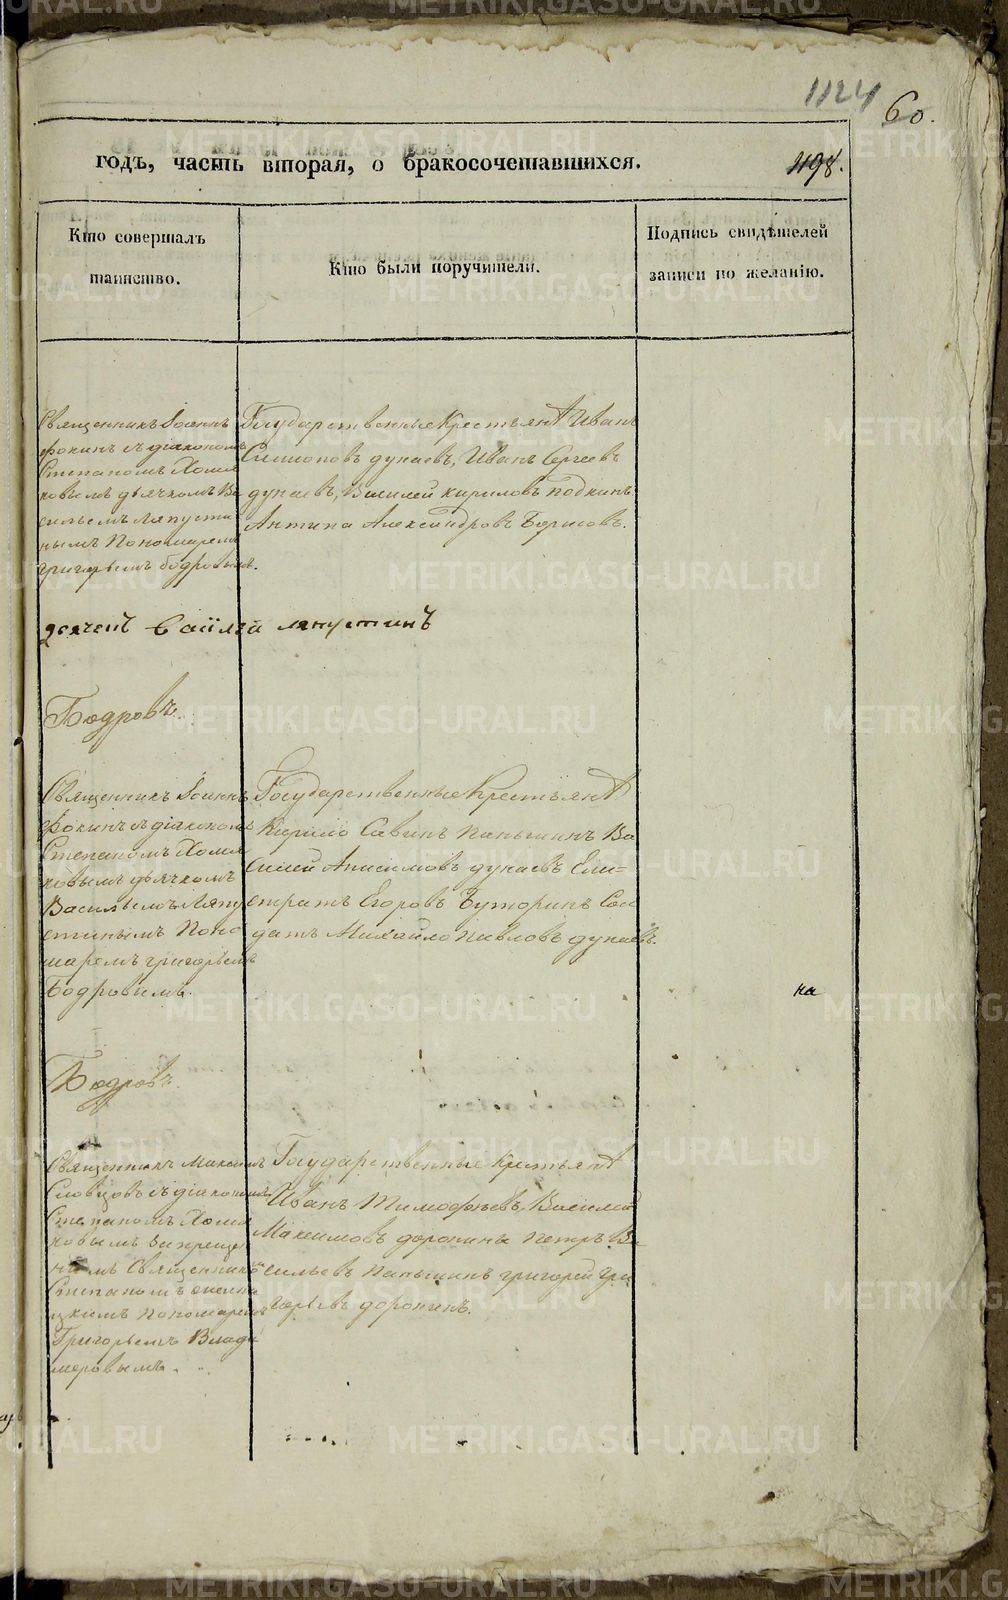 1124
60.
годъ, часть вторая, о бракосочетавшихся.
1198.
Кто совершалъ
таинство.
Кто были поручители.
Подпись свидѣтелей
записи по желанію.
Священникъ Іоаннъ
Фокинъ съ діакономъ
Степаномъ Хомя
ковымъ дьячкомъ Ва
сильемъ Ляпусти
нымъ Пономаремъ
Григорьемъ Бодровымъ.
Государственные Крестьяне Иванъ
дунаевъ, Иванъ Сергѣевъ
дунаевъ, Василей Кириловъ
Антипа Александровъ Борисовъ.
дьячекъ Василей ляпустинъ
Бодровъ
Священникъ Іоаннъ
Фокинъ съ діакономъ
Степаномъ Хомя
ковымъ дьячкомъ
Васильемъ Ляпу
стинымъ Поно
маремъ Григорьемъ
Бодровымъ.
Государственные Крестьяне
Кирило Савинъ Паньшинъ Ва
силей Анисимовъ дунаевъ Ели=
стратъ Егоровъ Буторинъ Сол
датъ Михайло Павловъ дунаевъ.
на
Бодровъ
Священникъ Максимъ
Словцовъ съ діакономъ
Степаномъ Хомя
ковымъ Запрещен
нымъ Священникомъ
Степаномъ
пономаремъ
Григорьемъ Влади
меровымъ.
Государственные Крестьяне
Иванъ Тимофѣевъ, Василей
Максимовъ доронины Петръ Ва
сильевъ Паньшинъ Григорей Гри
горьевъ доронинъ.